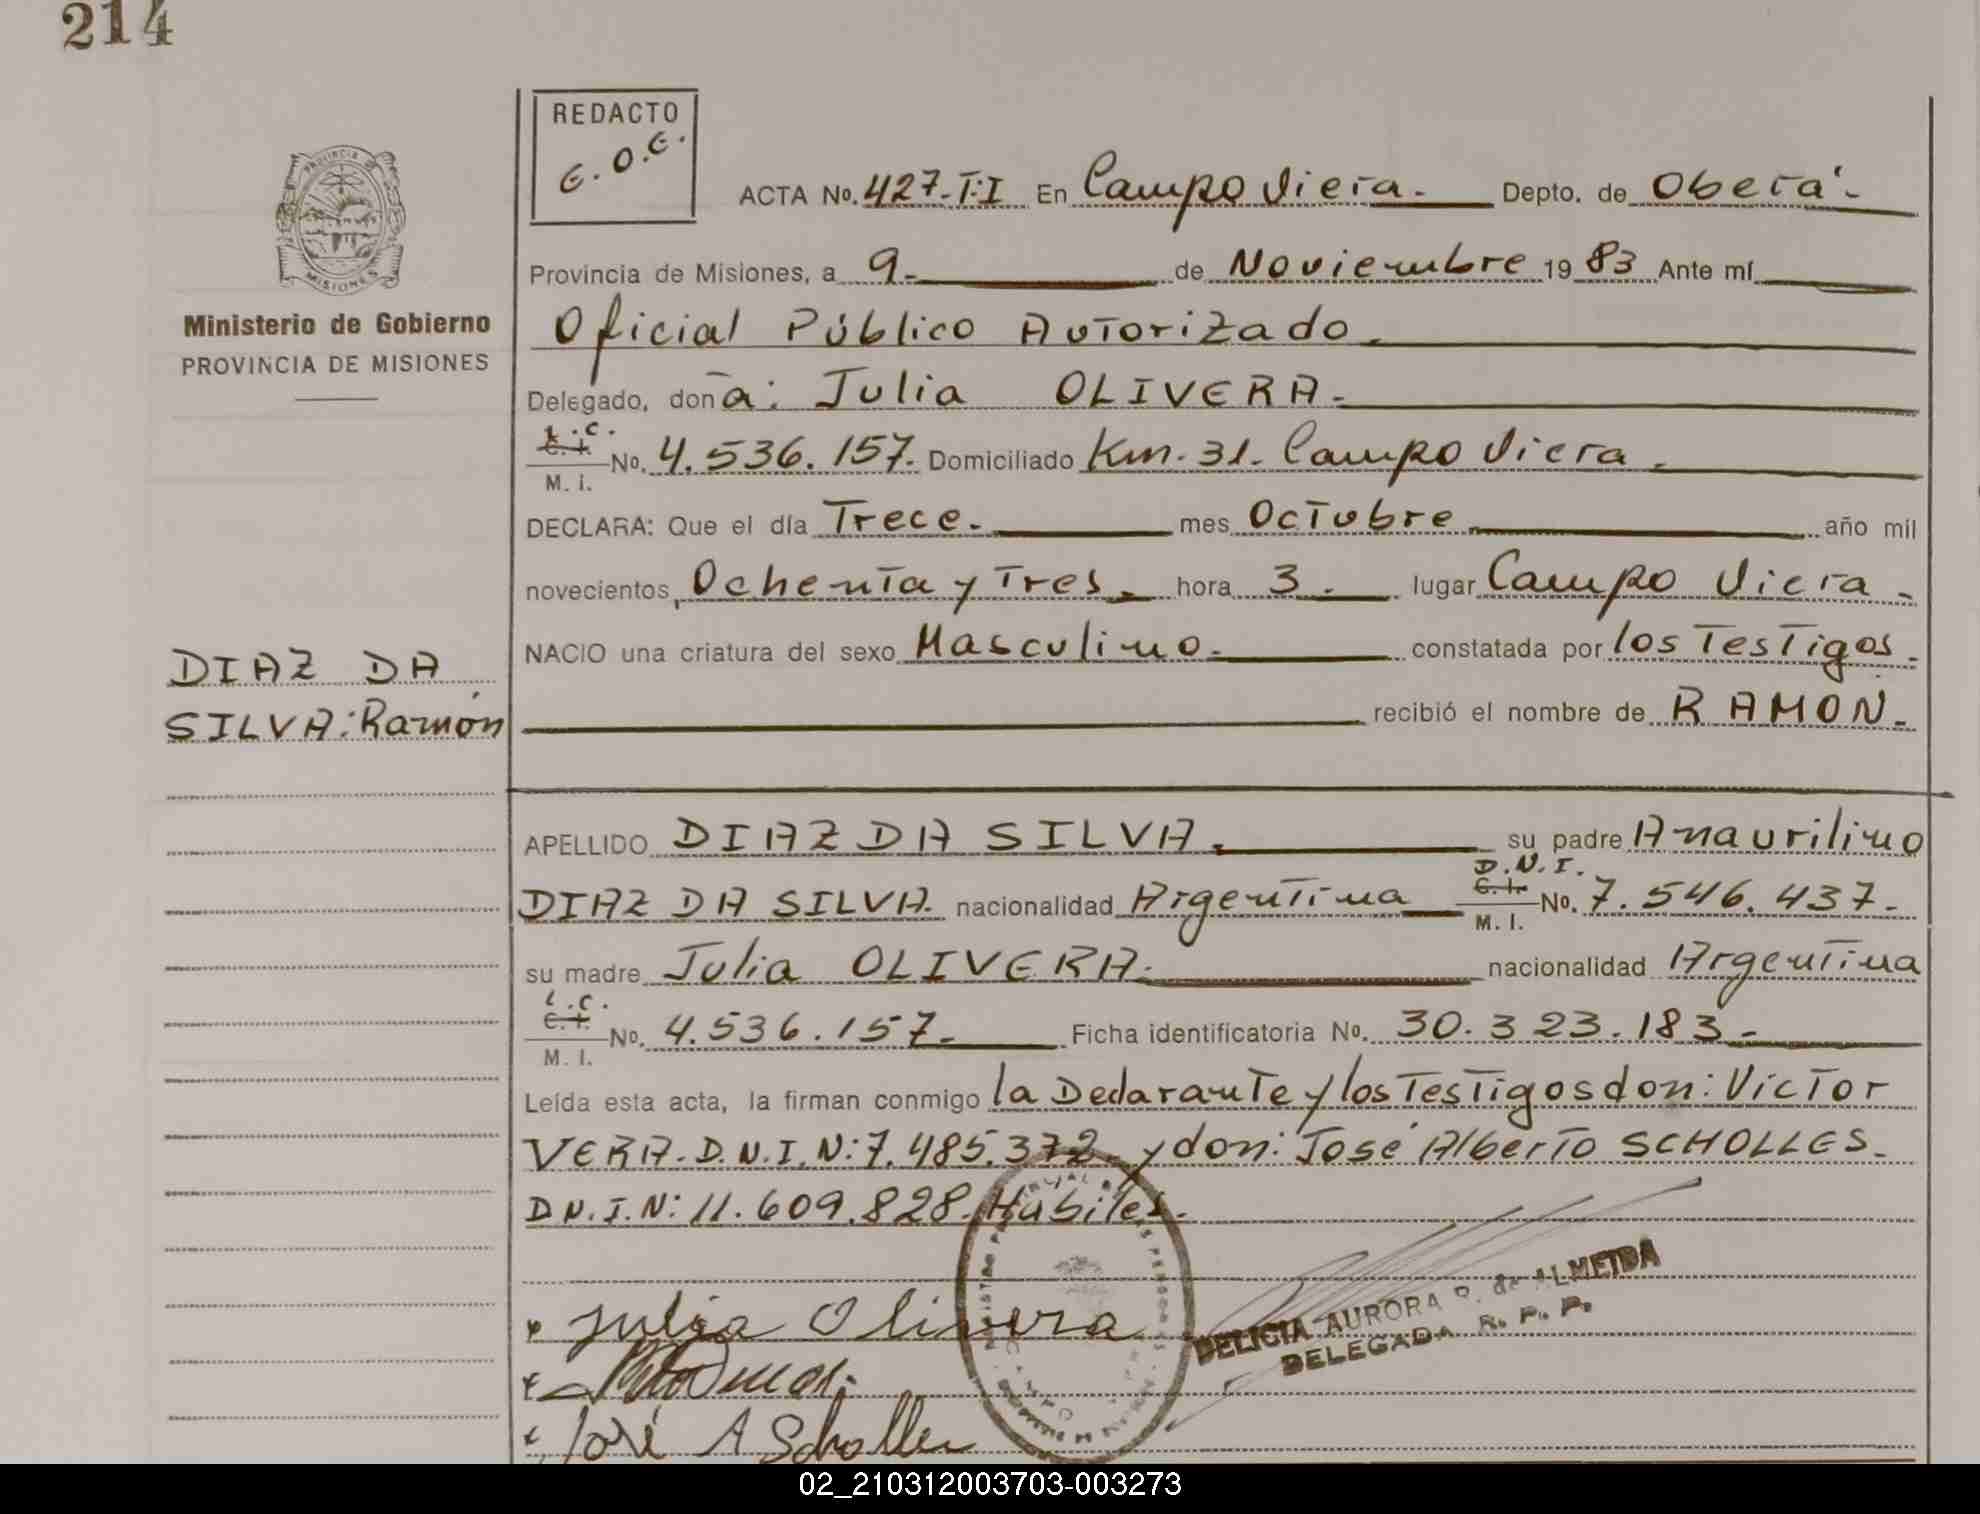 214
REDACTO
E. O. E.
ACTA No. 427-T:I En Campo Viera.- Depto. de Oberá.-
Provincia de Misiones, a 9.- de Noviembre 19 83 Ante mí
Oficial Público Autorizado.
Delegado, doña: Julia OLIVERA.-
L.C.
C.I. No. 4.536.157. Domiciliado Km. 31. Campo Viera.
M. I.
DECLARA: Que el día Trece.- mes Octubre año mil
novecientos, Ochenta y Tres. hora 3.- lugar Campo Viera.-
NACIO una criatura del sexo Masculino.- constatada por los Testigos.-
recibió el nombre de RAMON.-
APELLIDO DIAZ DA SILVA. su padre Anaurilino
D.N.I.
DIAZ DA SILVA. nacionalidad Argentina C.I. No. 7.546.437.-
M. I.
su madre Julia OLIVERA.- nacionalidad Argentina
L.C.
C.I. No. 4.536.157.- Ficha identificatoria No. 30.323.183.-
M. I.
Leída esta acta, la firman conmigo la Declarante y los Testigos don: Victor
VERA. D.N.I. N: 7.485.372. y don: José Alberto SCHOLLES.-
D N.I. N: 11.609.828. Habiles.-
Julia Olivera
José A Scholles
DELICIA AURORA de ALMEIDA
DELEGADA R. P. P.
PROVINCIA DE
MISIONES
Ministerio de Gobierno
PROVINCIA DE MISIONES
DIAZ DA
SILVA: Ramón
02_210312003703-003273